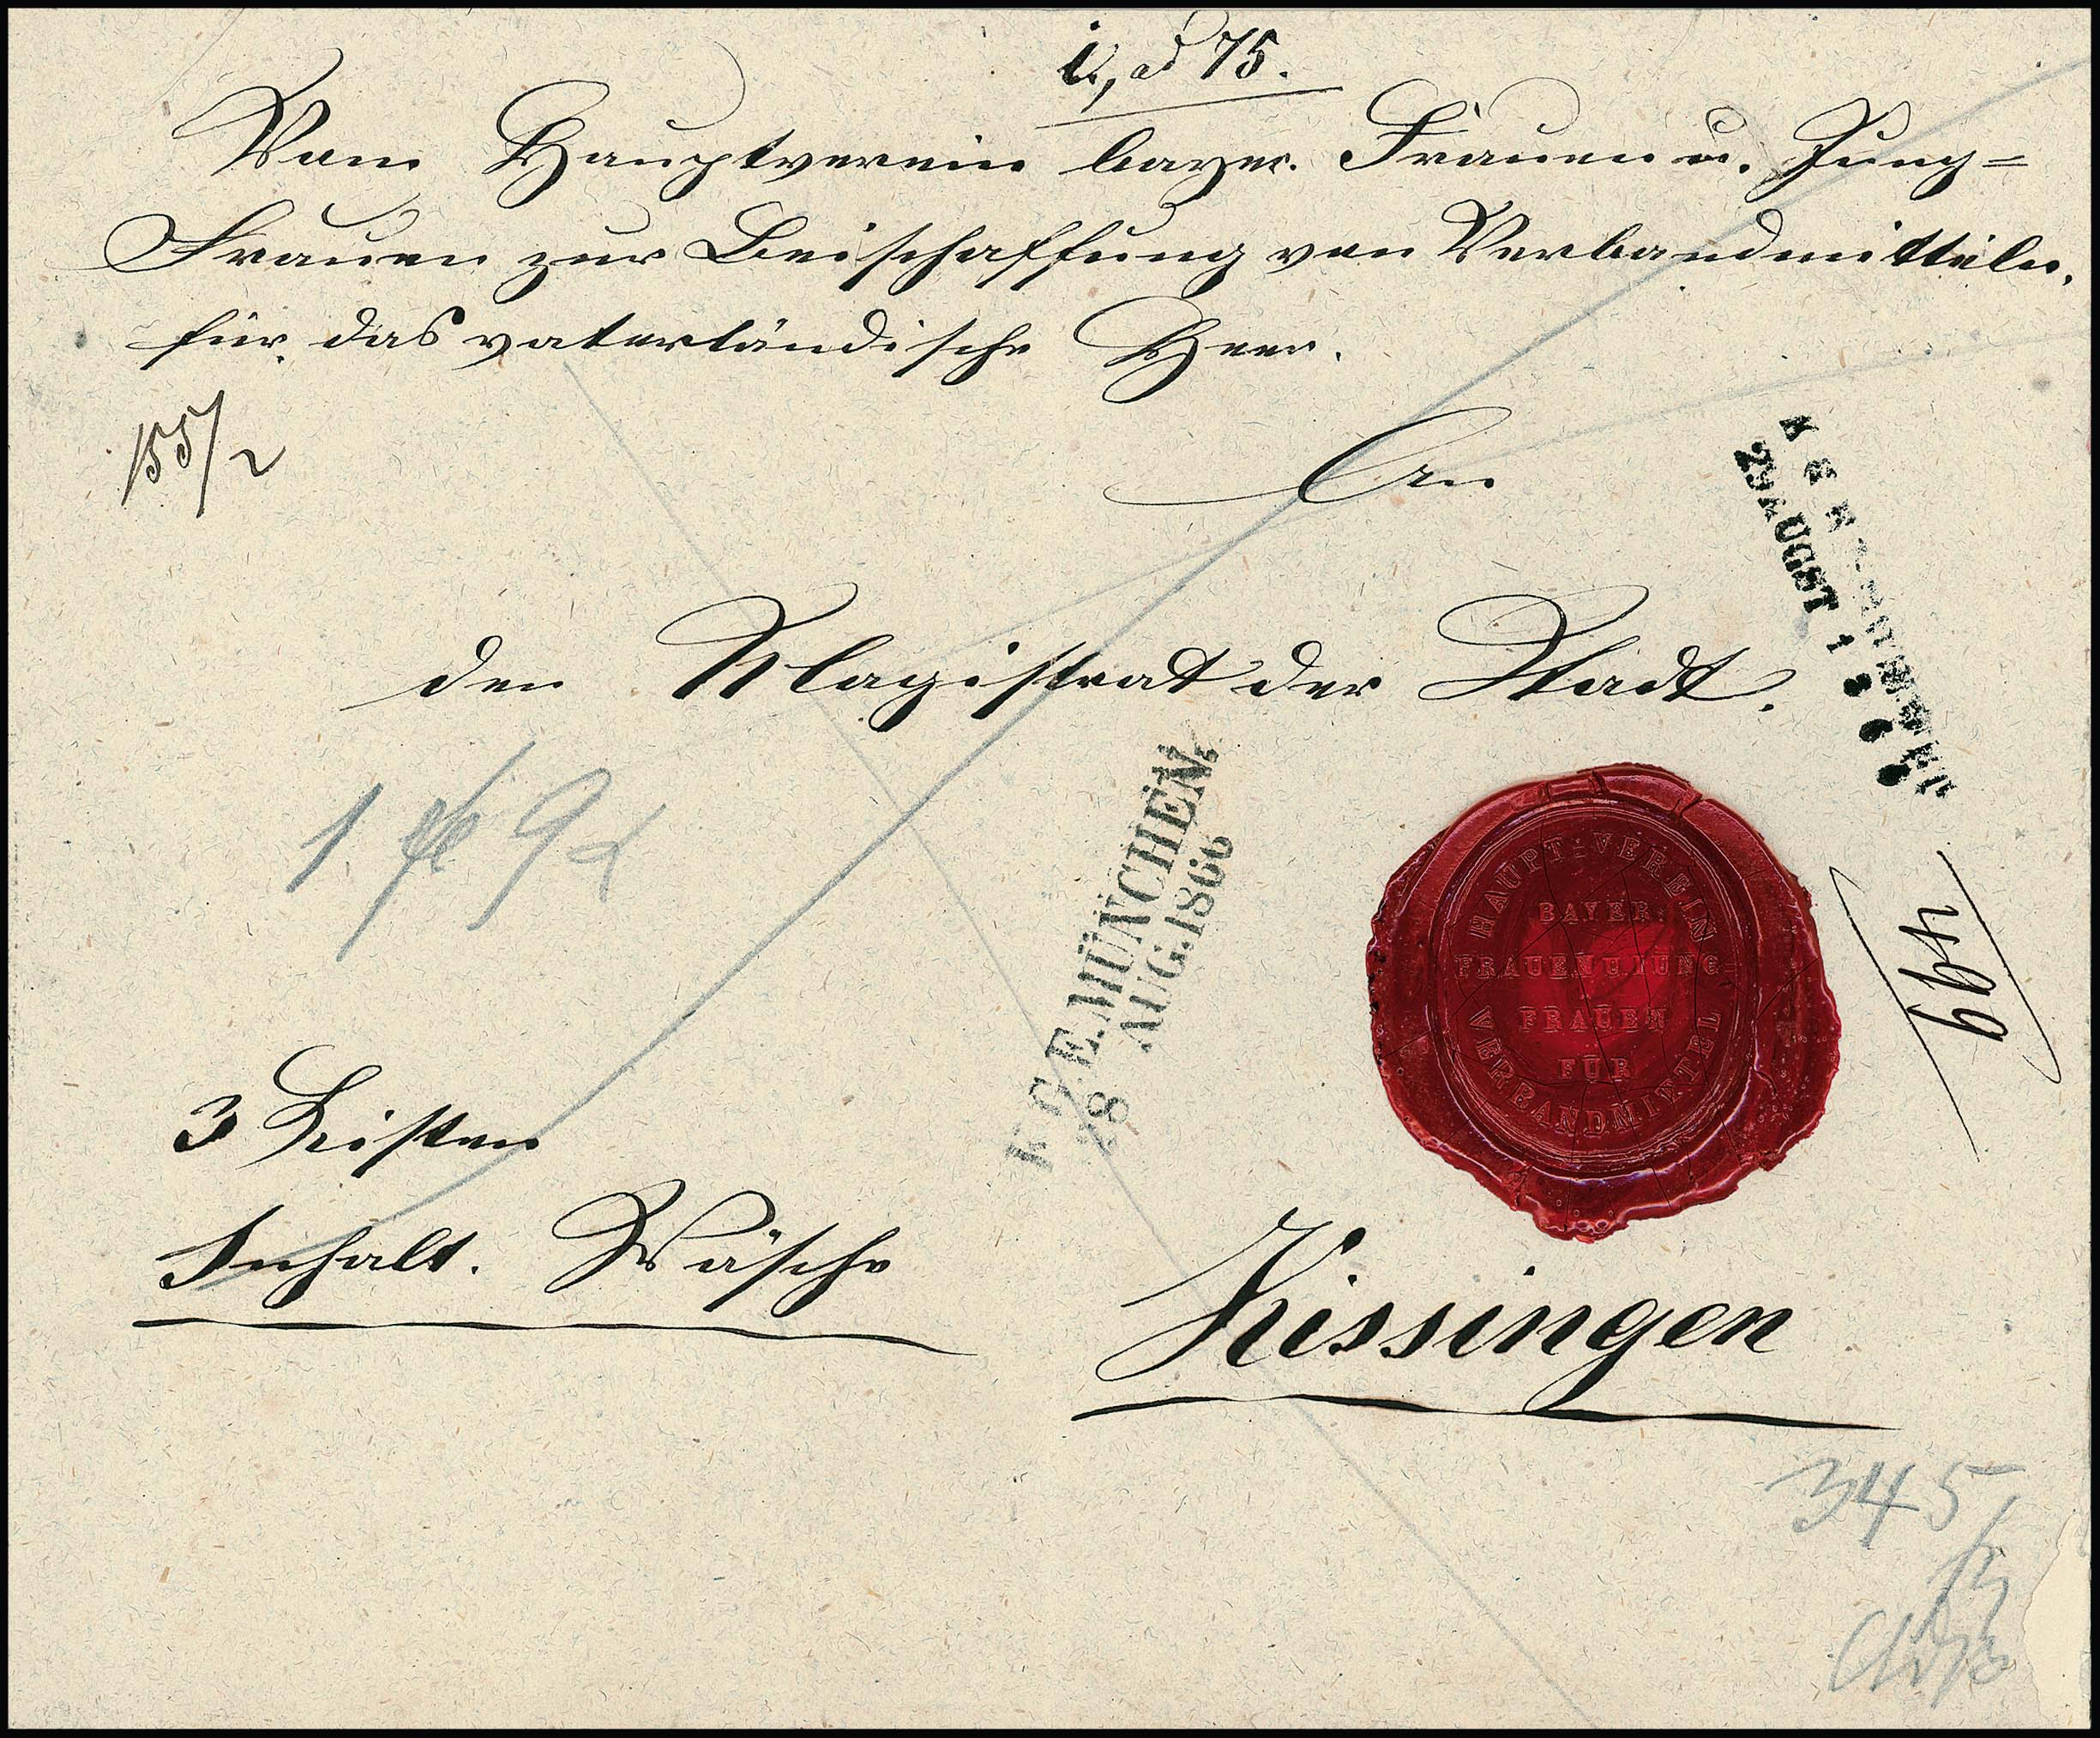 ad 75.
Vom Hauptverein bayer. Frauen u. Jung=
frauen zur Beischaffung von Verbandmitteln.
für das vaterländische Heer.
155/2
An
den Magistrat der Stadt.
29 AUGST 1866
1 9
K. G. E. MÜNCHEN.
28 AUG. 1866
HAUPT-VEREIN
BAYER.
FRAUEN U. JUNG-
FRAUEN
FÜR
VERBANDMITTEL
664
3 Kisten
Inhalt. Wäsche
Kissingen
345